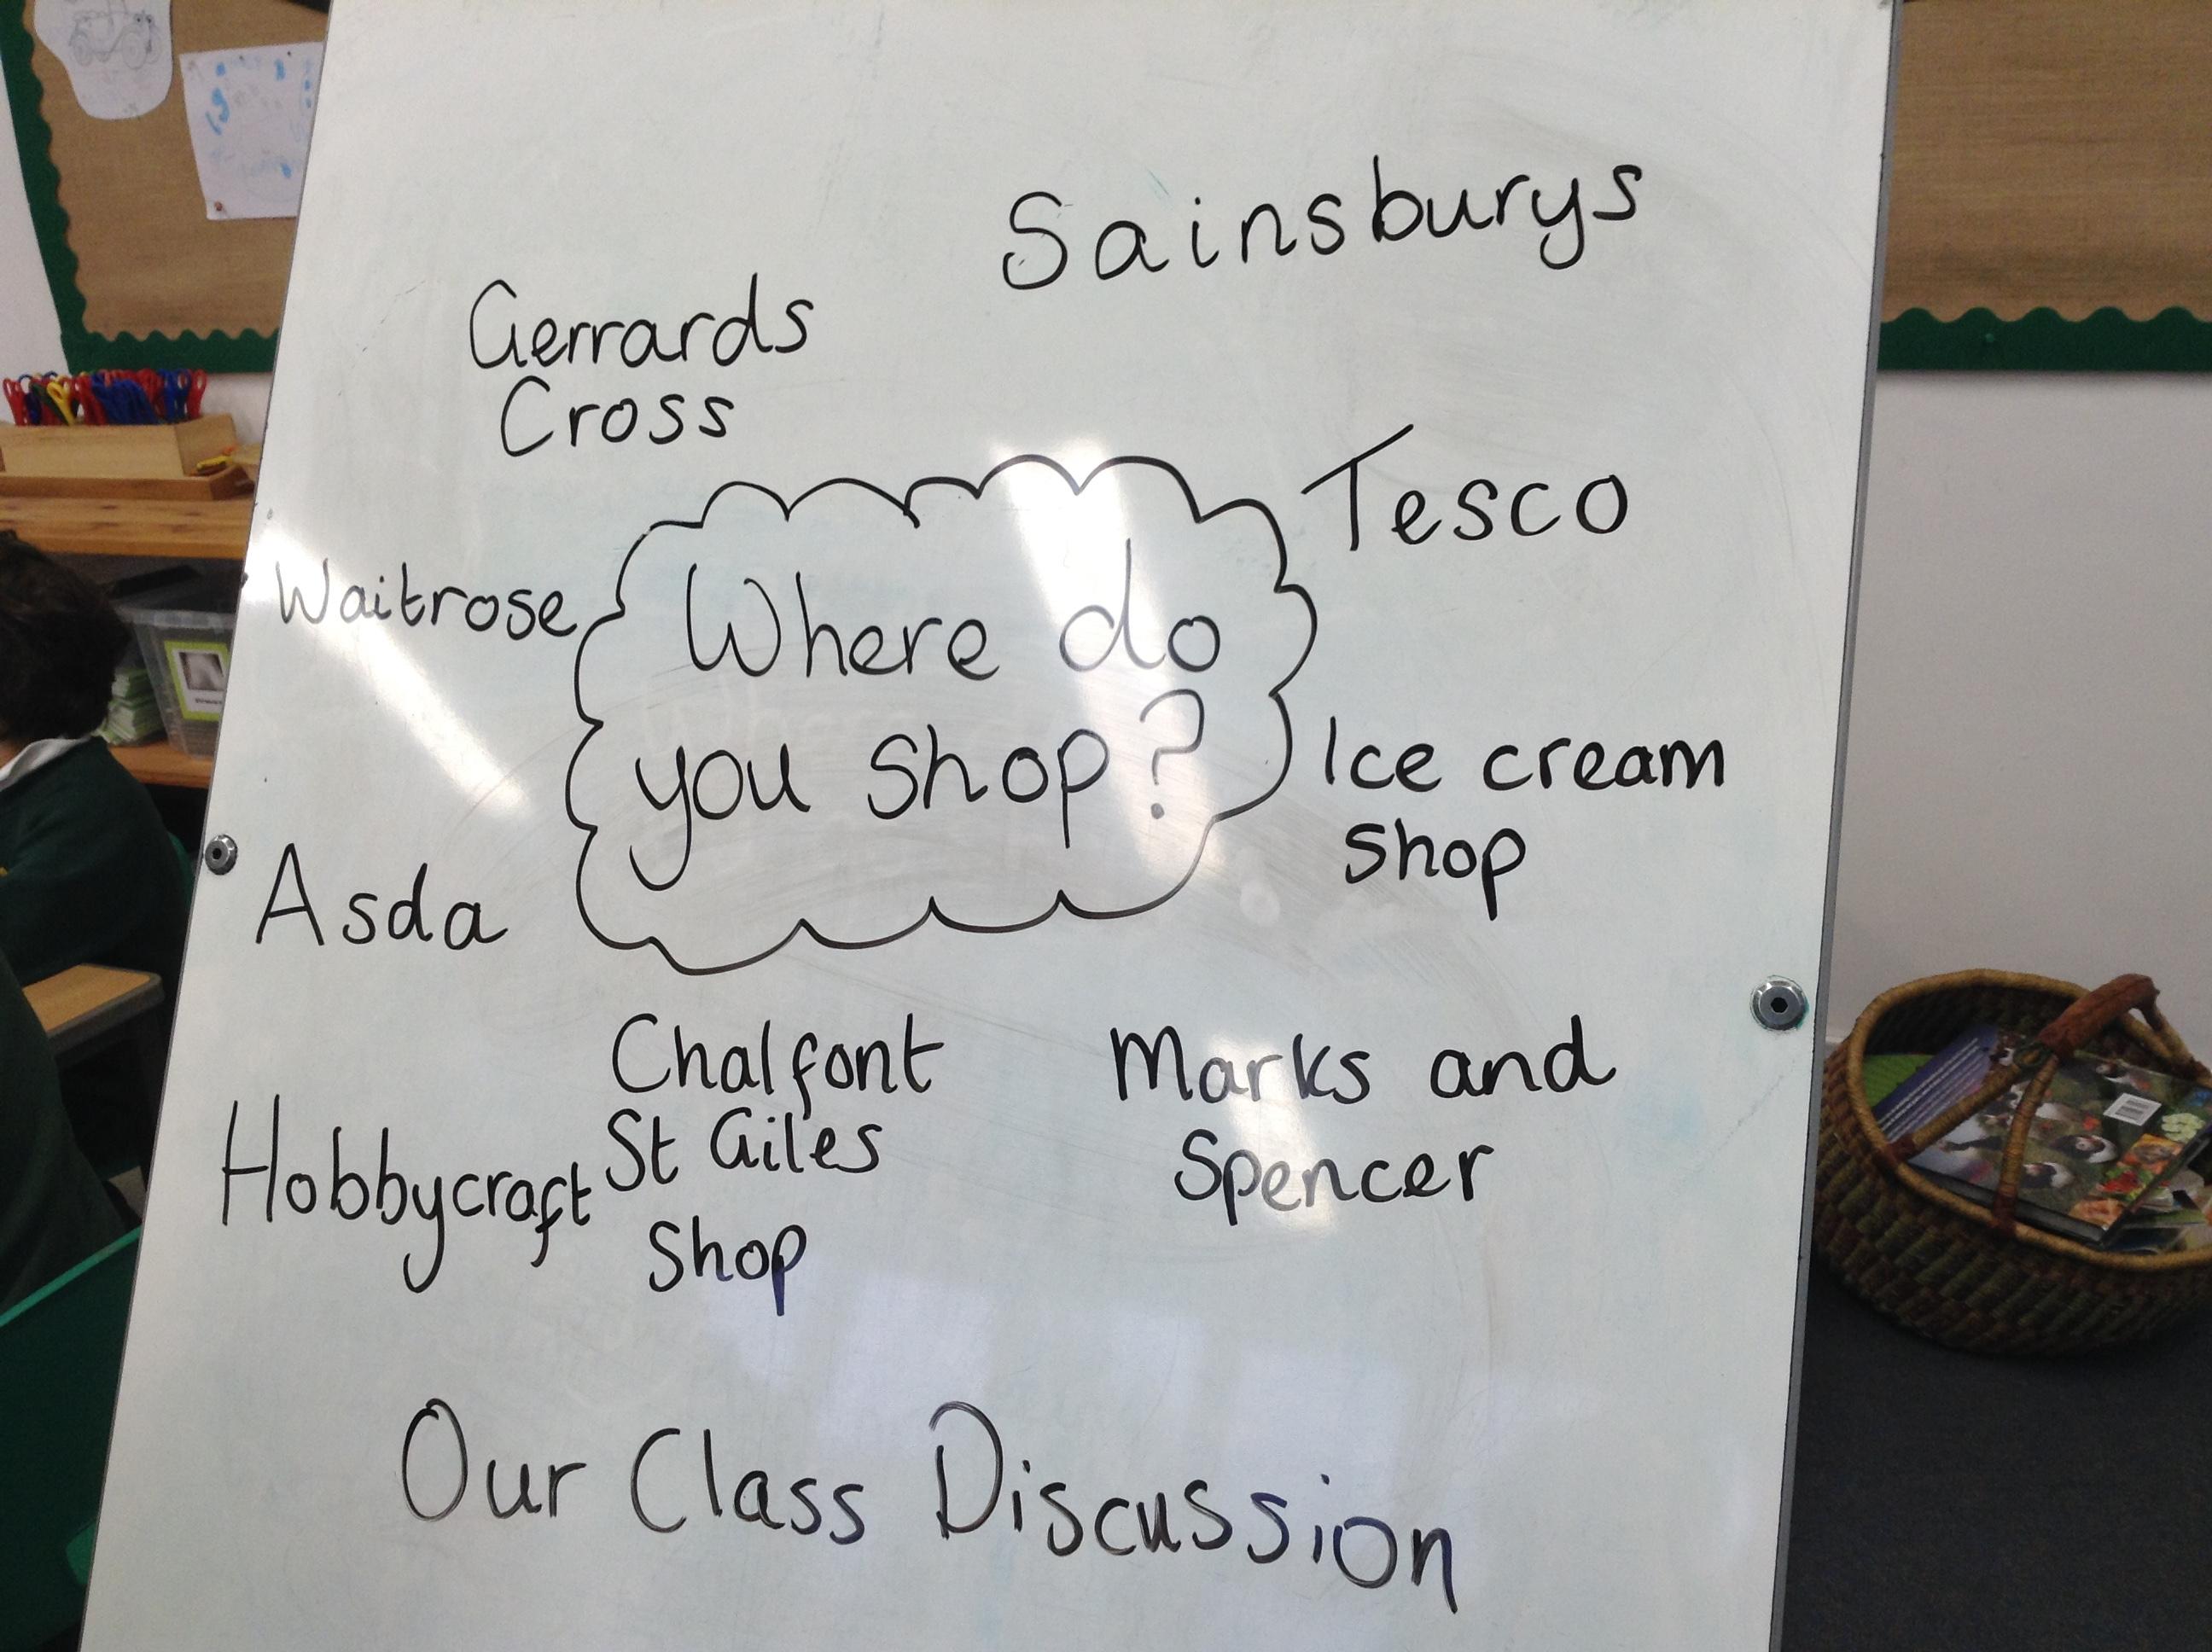 Sainsburys
Gerrards
Cross
Tesco
Waitrose
Where do
you shop?
Ice cream
shop
Asda
Chalfont
St Giles
Shop
Marks and
Spencer
Hobbycraft
Our Class Discussion